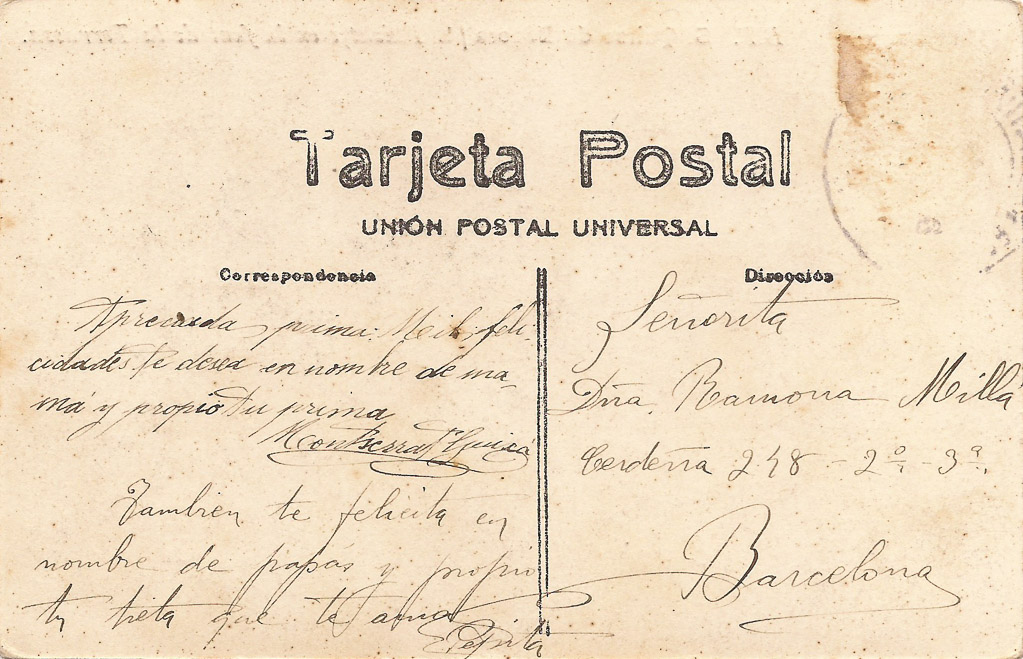 Tarjeta Postal
UNIÓN POSTAL UNIVERSAL
Correspondencia
Dirección
Apreciada prima. Mil feli-
cidades te desea en nombre de ma-
má y propio tu prima
Montserrat
Tambien te felicita en
nombre de papás y propio
tu que te ama
Pepita
Señorita
Dña. Ramona Millá
Cerdeña 248 - 2º. - 3ª.
Barcelona